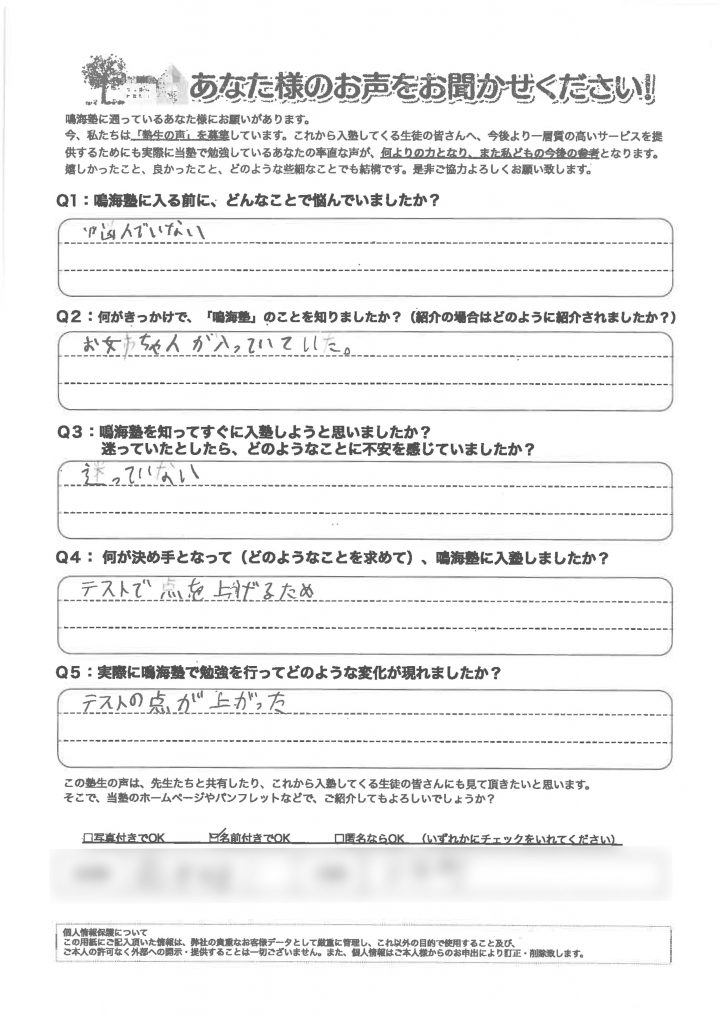 あなた様のお声をお聞かせください!
鳴海塾に通っているあなた様にお願いがあります。
今、私たちは「塾生の声」を募集しています。これから入塾してくる生徒の皆さんへ、今後より一層質の高いサービスを提
供するためにも実際に当塾で勉強しているあなたの率直な声が、何よりの力となり、また私どもの今後の参考となります。
嬉しかったこと、良かったこと、どのような些細なことでも結構です。是非ご協力よろしくお願い致します。
Q1：鳴海塾に入る前に、どんなことで悩んでいましたか？
悩んでいない
Q2：何がきっかけで、「鳴海塾」のことを知りましたか？（紹介の場合はどのように紹介されましたか？）
お姉ちゃんが入っていていた。
Q3：鳴海塾を知ってすぐに入塾しようと思いましたか？
迷っていたとしたら、どのようなことに不安を感じていましたか？
迷っていない
Q4： 何が決め手となって（どのようなことを求めて）、鳴海塾に入塾しましたか？
テストで点を上げるため
Q5：実際に鳴海塾で勉強を行ってどのような変化が現れましたか？
テストの点が上がった
この塾生の声は、先生たちと共有したり、これから入塾してくる生徒の皆さんにも見て頂きたいと思います。
そこで、当塾のホームページやパンフレットなどで、ご紹介してもよろしいでしょうか？
□写真付きでOK ☑名前付きでOK □匿名ならOK （いずれかにチェックをいれてください）
個人情報保護について
この用紙にご記入頂いた情報は、弊社の貴重なお客様データとして厳重に管理し、これ以外の目的で使用すること及び、
ご本人の許可なく外部への開示・提供することは一切ございません。また、個人情報はご本人様からのお申出により訂正・削除致します。